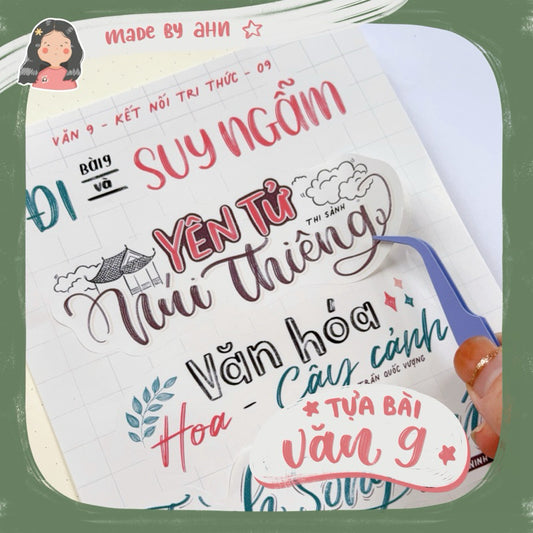 MADE BY AHN
VĂN 9 - KẾT NỐI TRI THỨC - 09
ĐI Bài 9 và SUY NGẪM
YÊN TỬ
THI SẢNH
Núi Thiêng
Văn hóa
Hoa - Cây cảnh
TRẦN QUỐC VƯỢNG
TỰA BÀI
văn 9